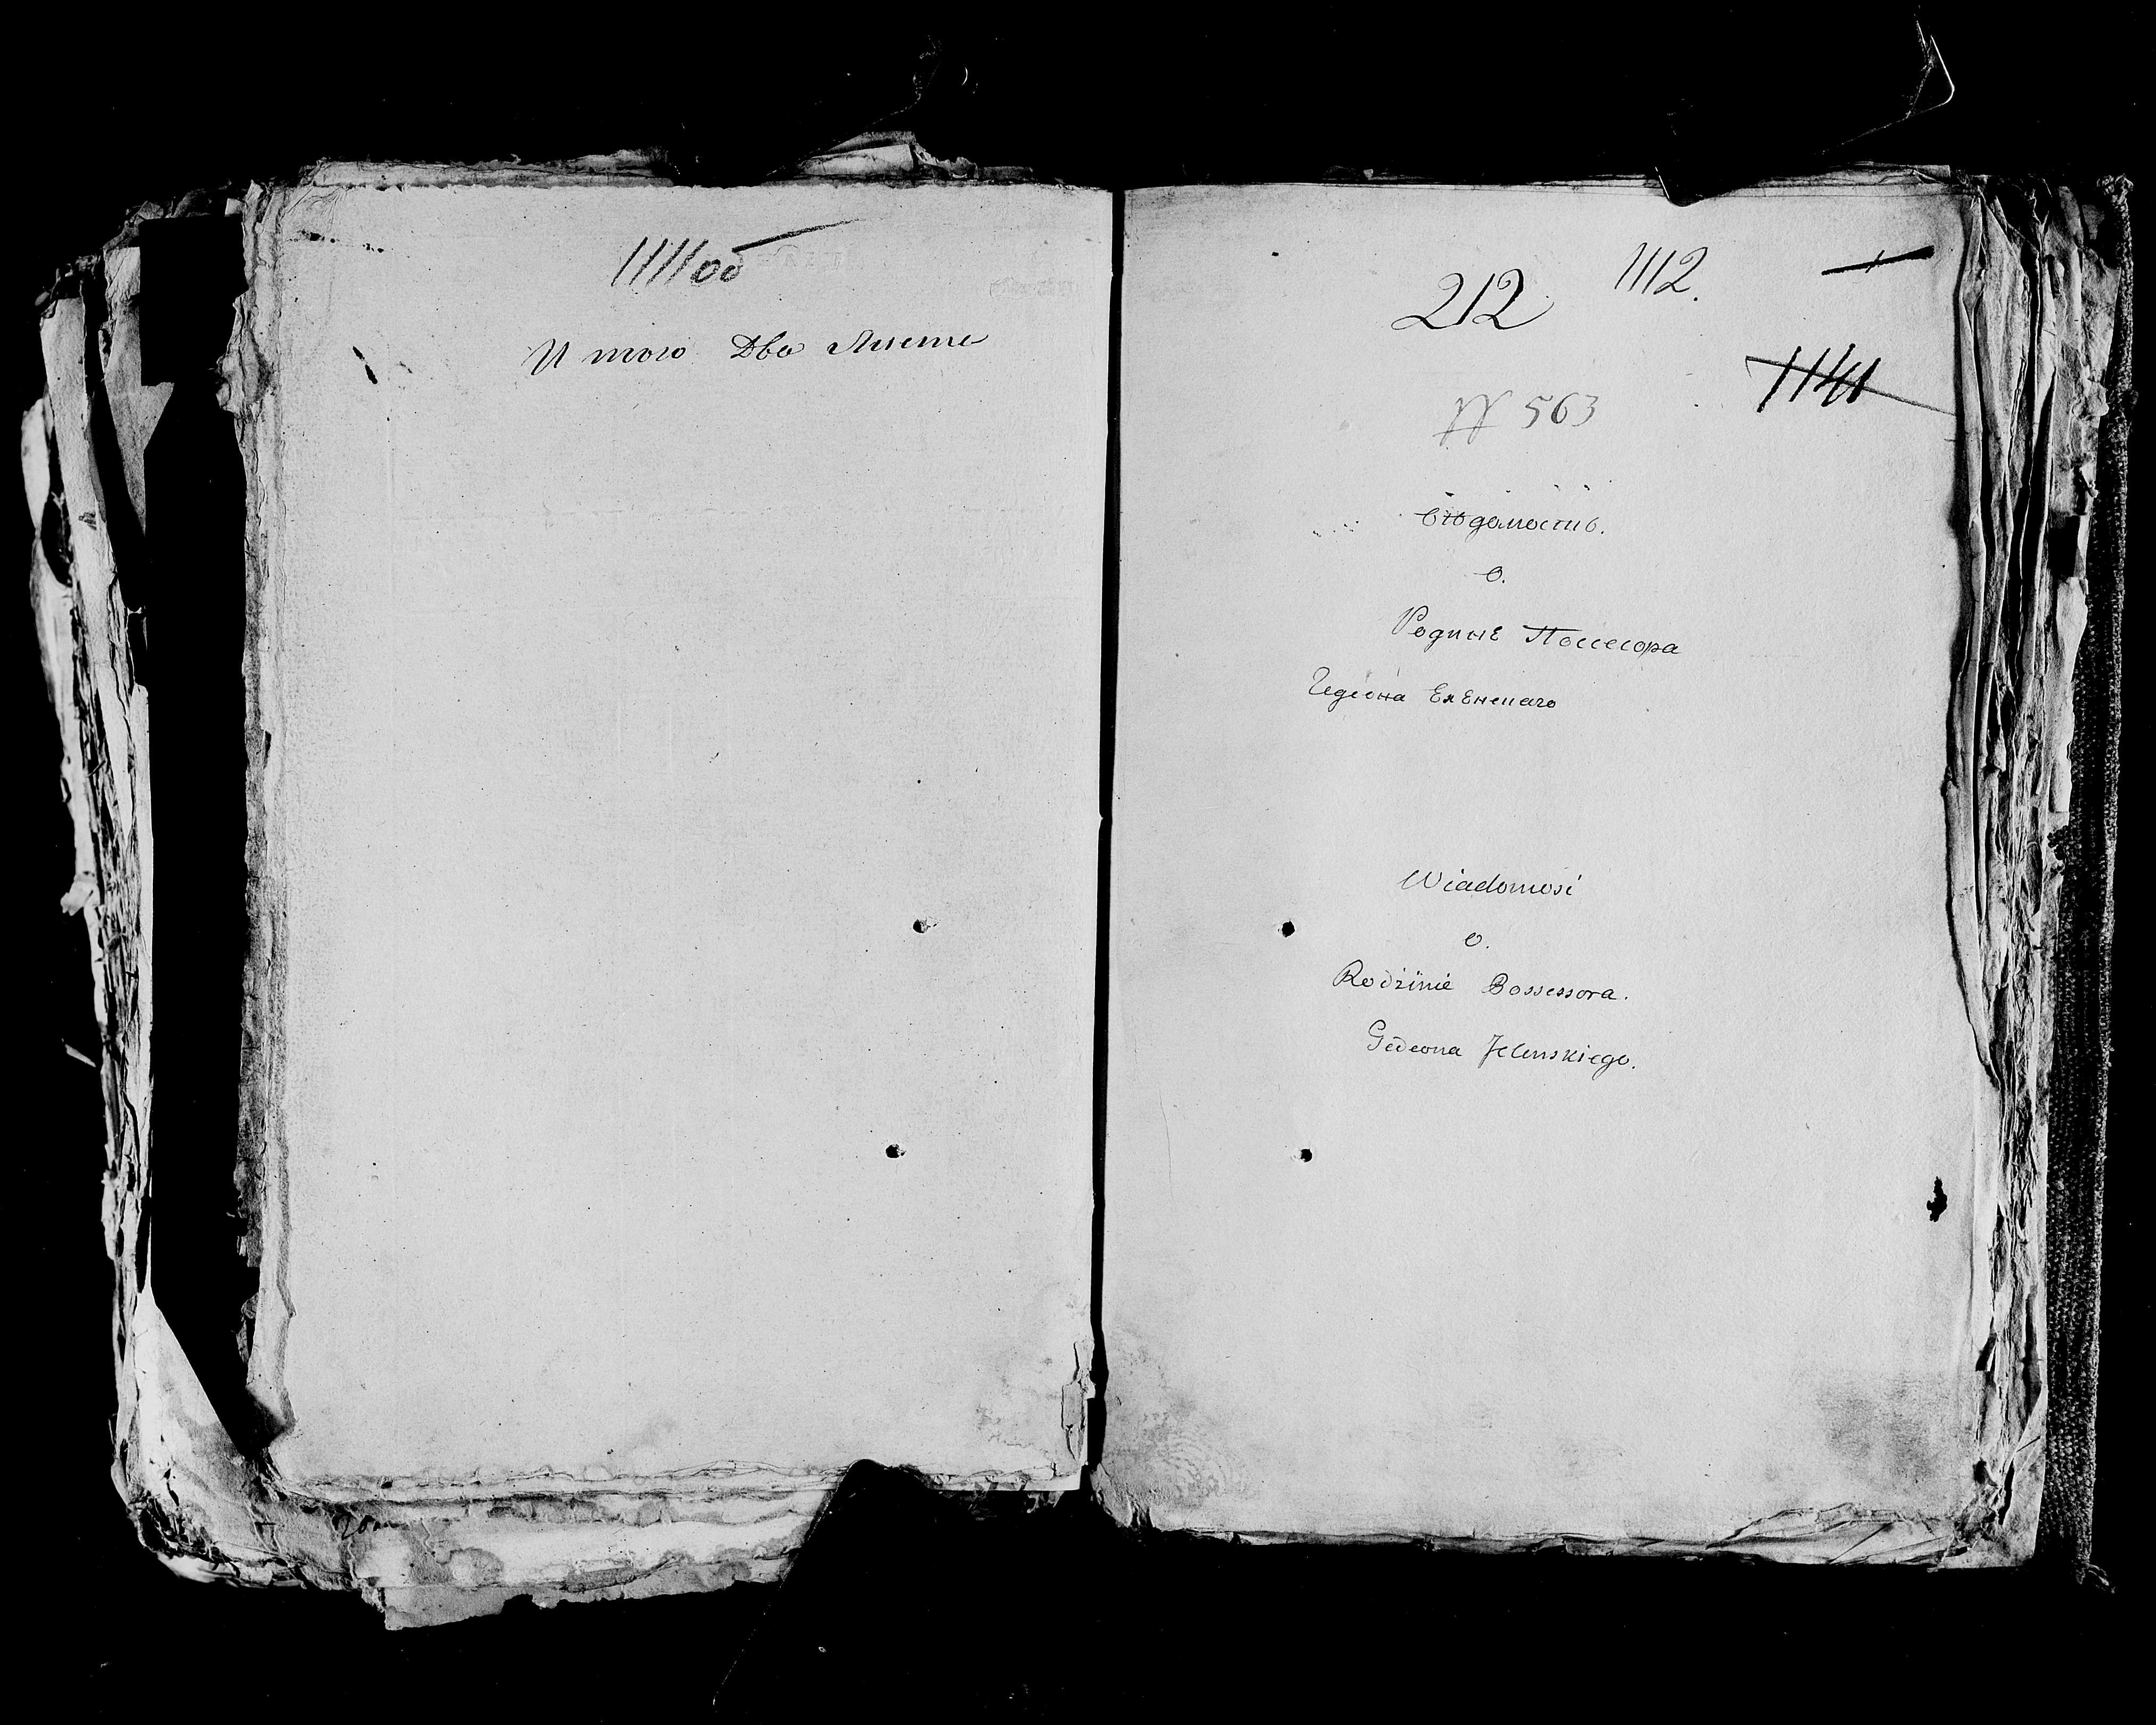 1111об
И того Два Листа
212
1112.
1141
№ 563
Вѣдомость.
О.
Родине Поссесора
Гедеона Еленскаго
Wiadomosć
o.
Rodzinie Bossessora.
Gedeona Jelenskiego.